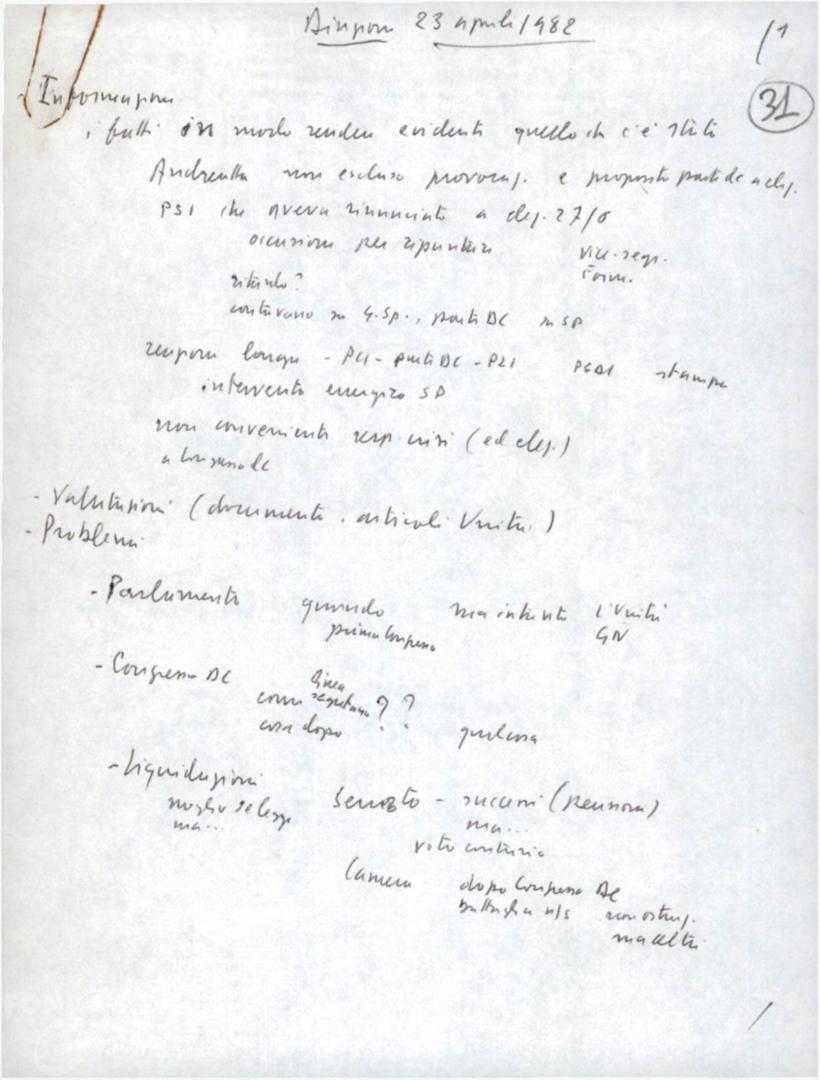 Direzione 23 aprile 1982
/1
31
- Informazioni
i fatti in modo rendere evidenti quello che c'è stato
Andreatta non escluso provocaz. e proposito parti dc a elez.
PSI che aveva rinunciato a elez. 27/6
occasione per spuntare
vice-segr.
Form.
ritardo?
contavano su G.Sp., parti DC su SP
Longo - PCI - parti DC - PRI PSDI stampa
intervento energico SP
non conveniente resp. crisi (ed elez.)
a Congresso dc
- Valutazioni (documento, articoli Unità)
- Problemi
- Parlamento quando ma intanto l'Unità
prima Congresso GN
- Congresso DC linea
come segretario ? ?
cosa dopo qualcosa
- Liquidazioni
meglio se legge Senato - successi (pensioni)
ma... ma...
voto contrario
Camera dopo Congresso DC
battaglia n/s non ostruz.
ma altri
/